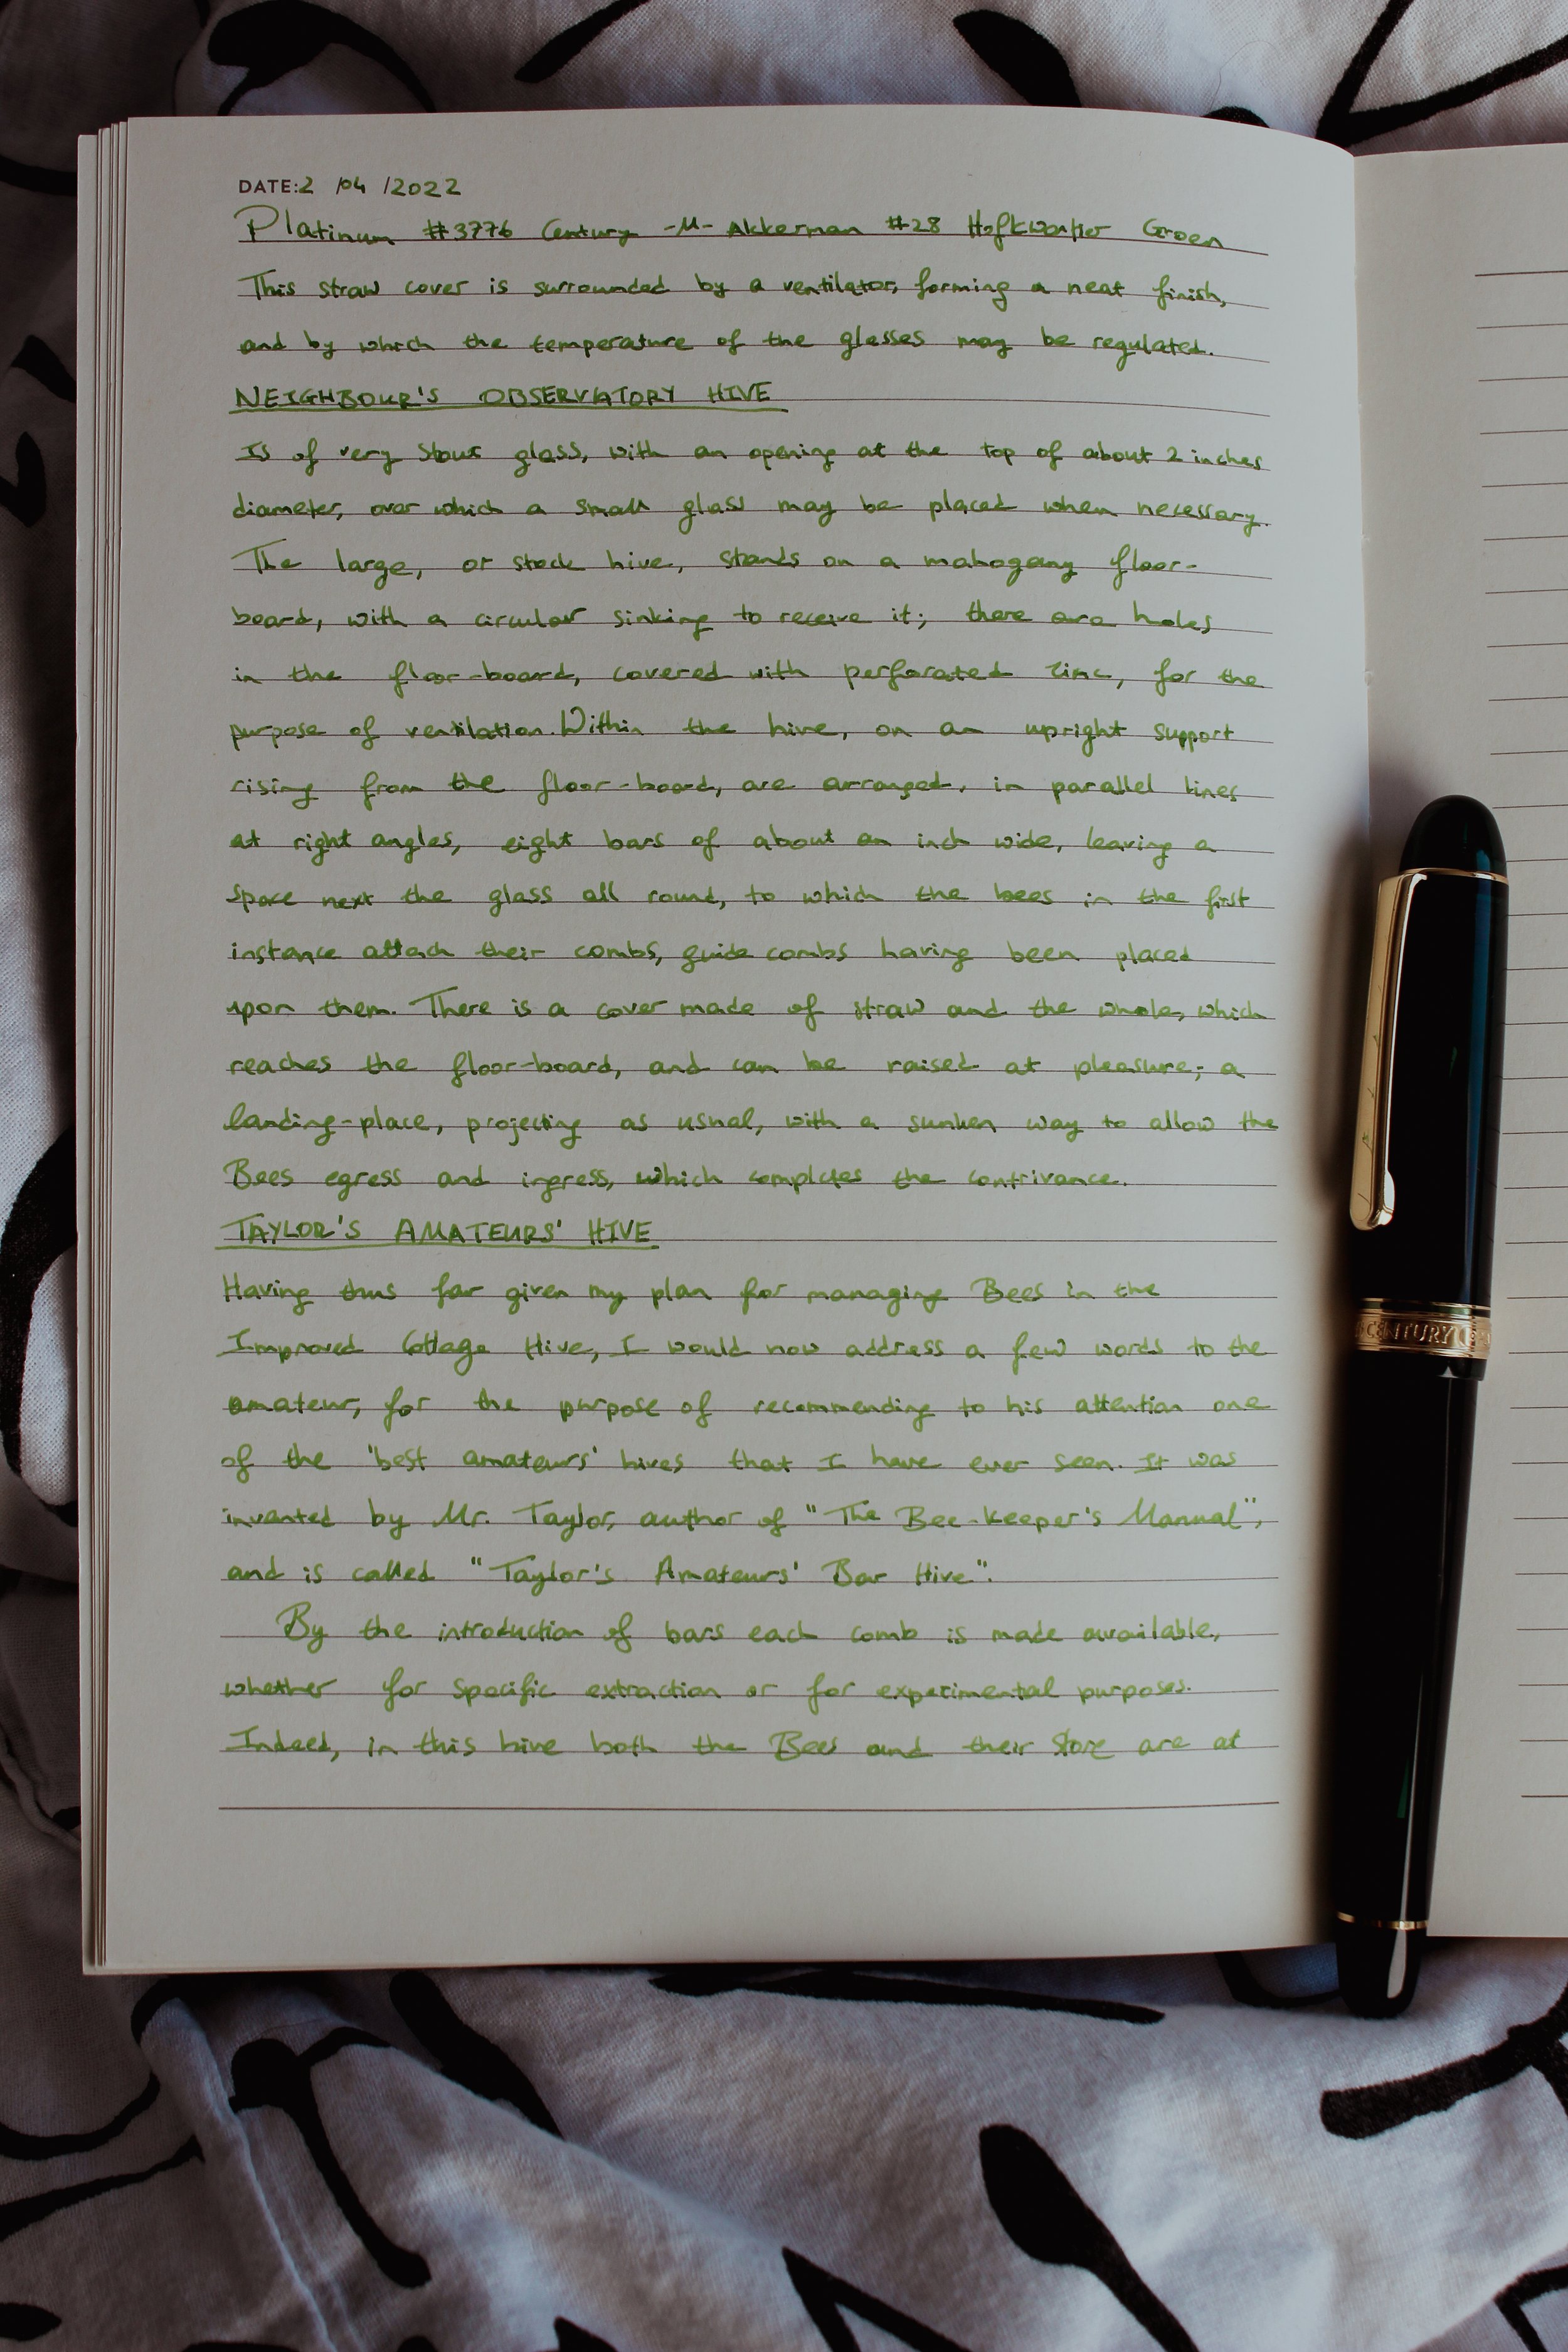 DATE: 2 /04 /2022
Platinum #3776 Century -M- Akkerman #28 Hofkwartier Groen
This straw cover is surrounded by a ventilator, forming a neat finish,
and by which the temperature of the glasses may be regulated.
NEIGHBOUR'S OBSERVATORY HIVE
Is of very stout glass, with an opening at the top of about 2 inches
diameter, over which a small glass may be placed when necessary.
The large, or stock hive, stands on a mahogany floor-
board, with a circular sinking to receive it; there are holes
in the floor-board, covered with perforated zinc, for the
purpose of ventilation. Within the hive, on an upright support
rising from the floor-board, are arranged, in parallel lines
at right angles, eight bars of about an inch wide, leaving a
space next the glass all round, to which the bees in the first
instance attach their combs, guide combs having been placed
upon them. There is a cover made of straw and the whole, which
reaches the floor-board, and can be raised at pleasure; a
landing-place, projecting as usual, with a sunken way to allow the
Bees egress and ingress, which completes the contrivance.
TAYLOR'S AMATEURS' HIVE
Having thus far given my plan for managing Bees in the
Improved Cottage Hive, I would now address a few words to the
amateur, for the purpose of recommending to his attention one
of the 'best amateurs' hives that I have ever seen. It was
invented by Mr. Taylor, author of "The Bee-keeper's Manual",
and is called "Taylor's Amateurs' Bar Hive".
By the introduction of bars each comb is made available,
whether for specific extraction or for experimental purposes.
Indeed, in this hive both the Bees and their store are at
CENTURY